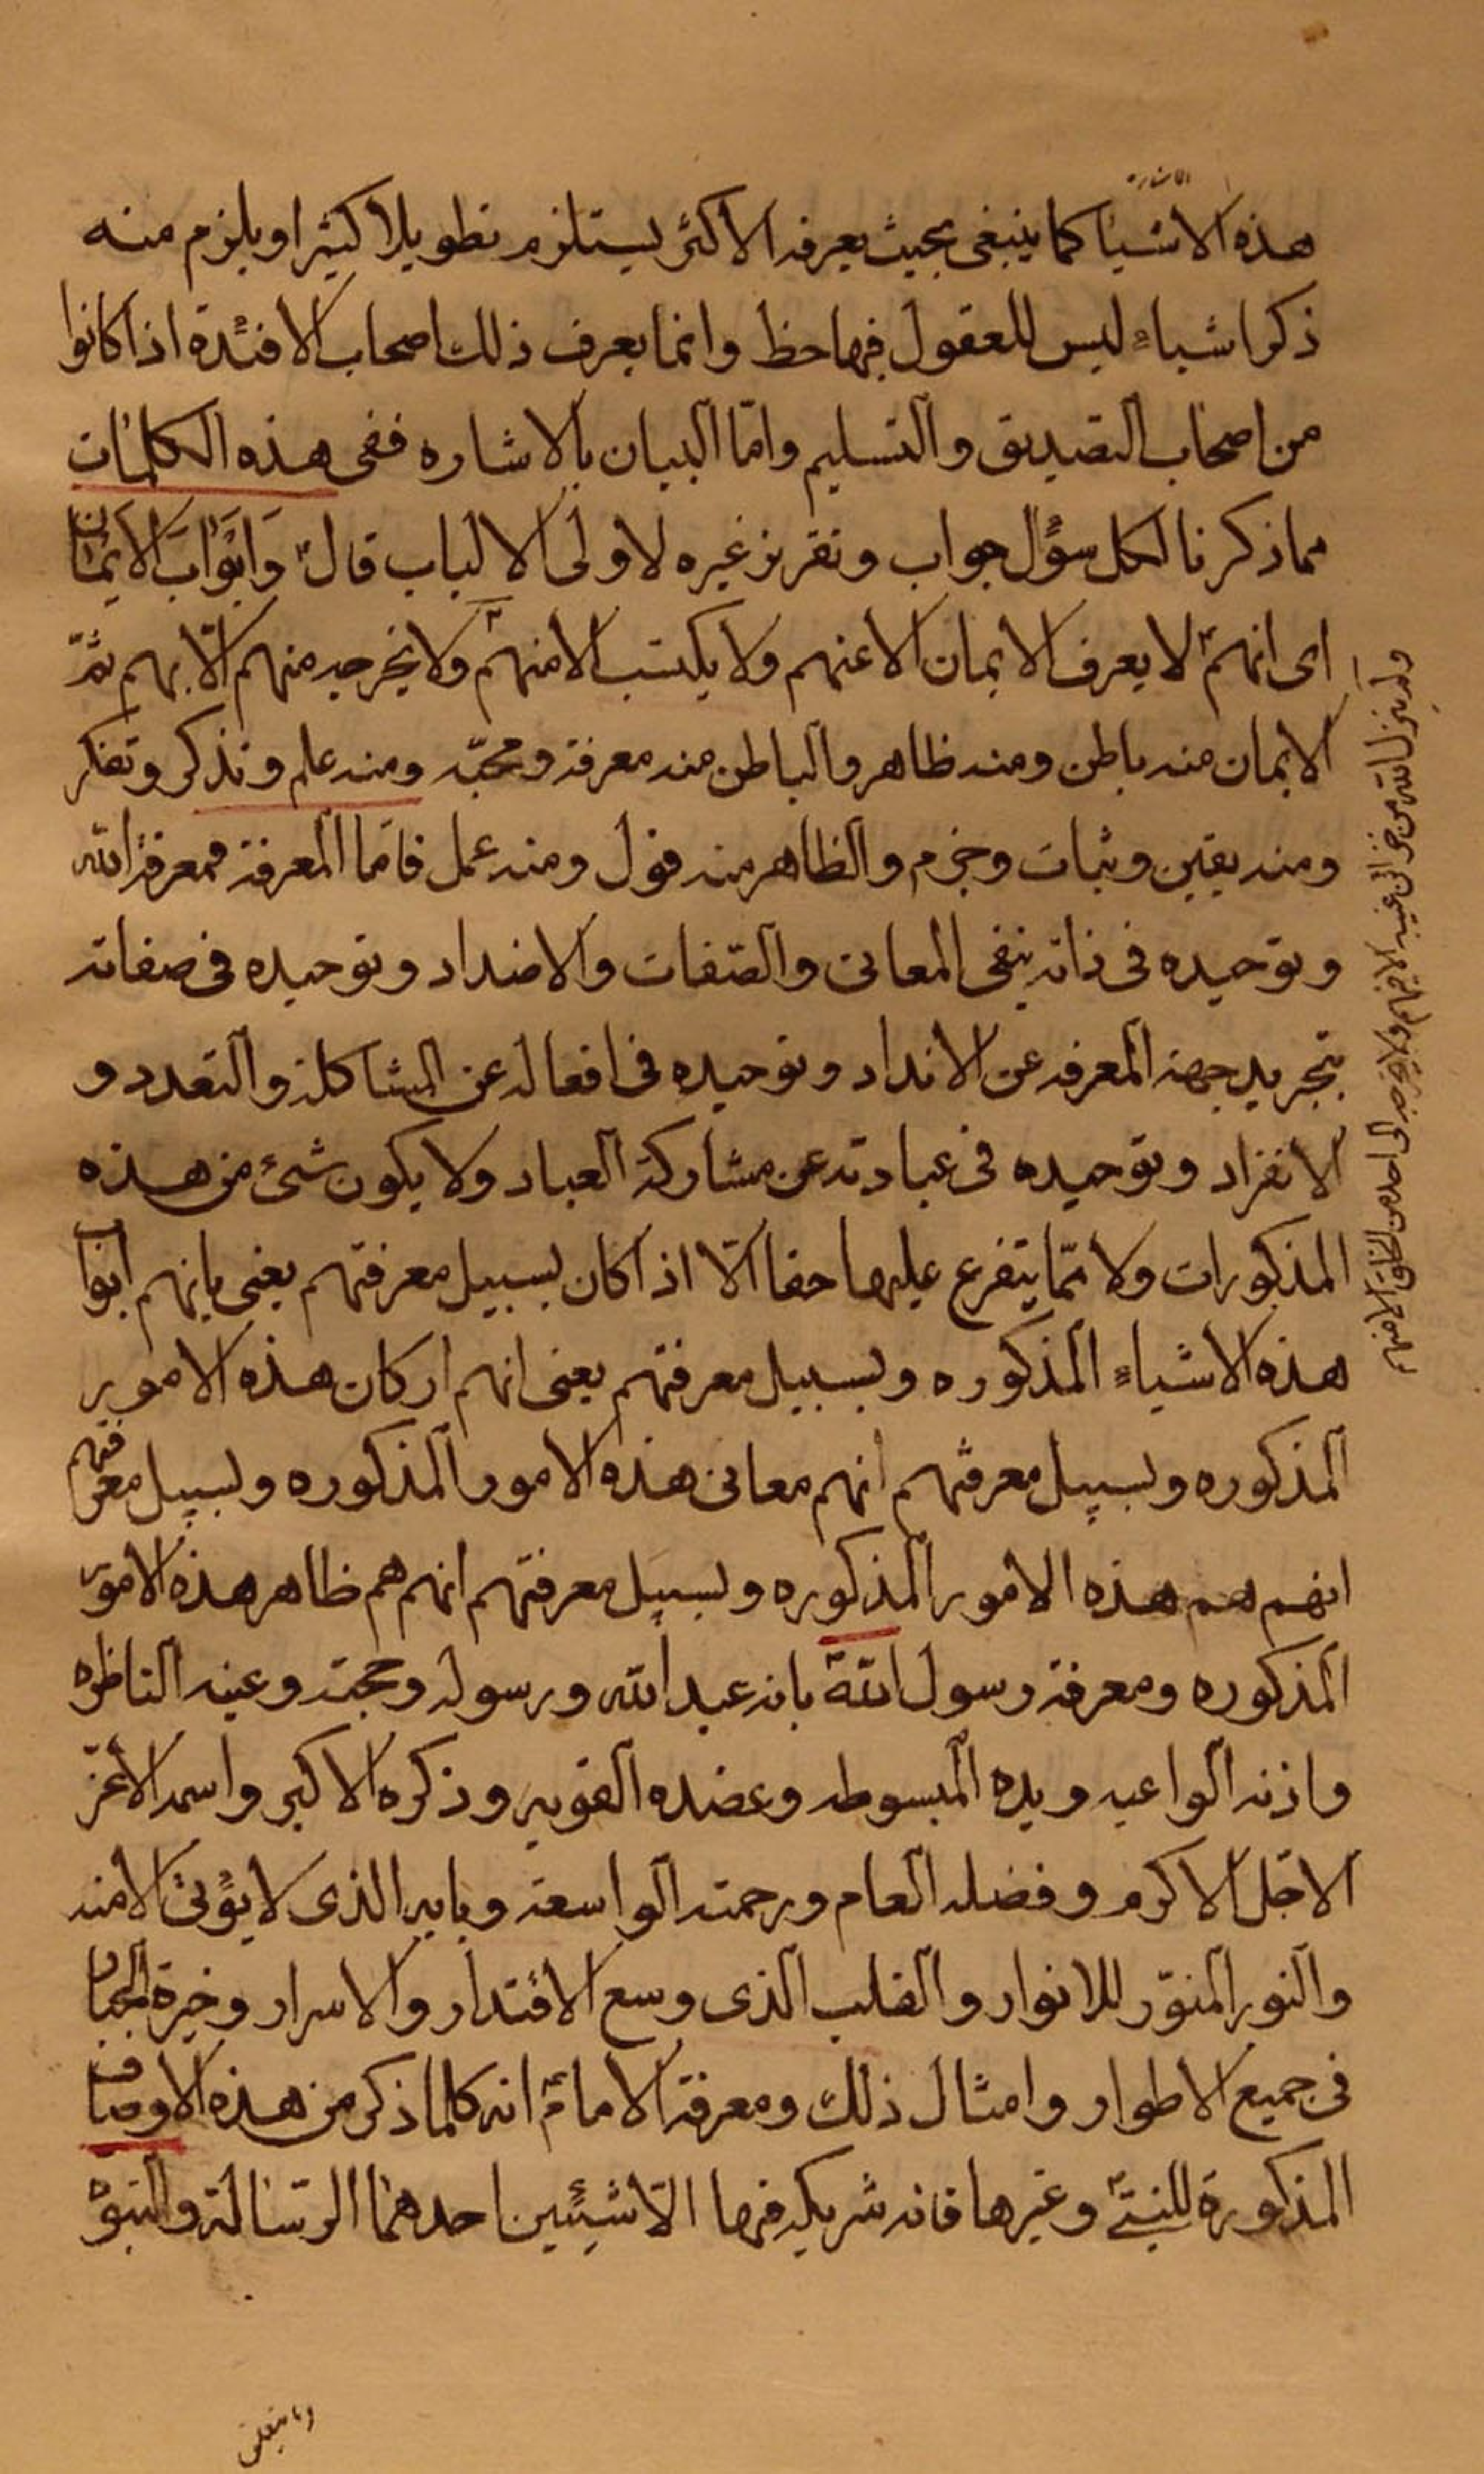 هذه الاشيا كما ينبغى بحيث يعرفه الاكثر يستلزم تطويلا كثيرا ويلزم منه
ذكر اشياء ليس للعقول فيها حظ وانما يعرف ذلك اصحاب الافئدة اذا كانوا
من اصحاب التصديق والتسليم وامّا البيان بالاشاره ففى هذه الكلمات
مما ذكرنا لكل سؤال جواب وتقريز غيره لاولى الالباب قال وَابْوابَ الايمان
اى انهم لا يعرف الايمان الا عنهم ولا يكتسب الا منهم ولا يخرجه منهم الّا بهم ثمّ
الايمان منه باطن ومنه ظاهر والباطن منه معرفة ومحبّه ومنه علم وتذكر وتفكر
ومنه يقين وثبات وجزم والظاهر منه قول ومنه عمل فامّا المعرفة فمعرفة الله
وتوحيده فى ذاته بنفى المعانى والصّفات والاضداد وتوحيده فى صفاته
بتجريد جهة المعرفه عن الانداد وتوحيده فى افعاله عن المشاكلة والتعدد و
الانفراد وتوحيده فى عبادته عن مشاركة العباد ولا يكون شىء من هذه
المذكورات ولا ممّا يتفرع عليها حقا الّا اذا كان بسبيل معرفتهم يعنى بانهم ابواب
هذه الاشياء المذكوره وبسبيل معرفتهم يعنى انهم اركان هذه الامور
المذكوره وبسبيل معرفتهم انهم معانى هذه الامور المذكوره وبسبيل معرفتهم
انهم هم هذه الامور المذكوره وبسبيل معرفتهم انهم هم ظاهر هذه الامور
المذكوره ومعرفة رسول اللهؐ بانه عبد الله ورسوله وحجته وعينه الناظره
واذنه الواعيه ويده المبسوطه وعضده القويه وذكره الاكبر واسمه الاعزّ
الاجلّ الاكرم وفضله العام ورحمته الواسعة وبابه الذى لا يؤتى الا منه
والنور المنوّر للانوار والقلب الذى وسع الاقتدار والاسرار وخيرة الجبار
فى جميع الاطوار وامثال ذلك ومعرفة الامامؑ انه كلما ذكر من هذه الاوصاف
المذكورة للنبىؐ وغيرها فانه شريكه فيها الّا شيئين احدهما الرّسالة والنبوّة
ولم ينزل الله من خزائن غيبه الا فيهم ولا يخرجه الى احد من الخلق الا منهم
وما يتعلق